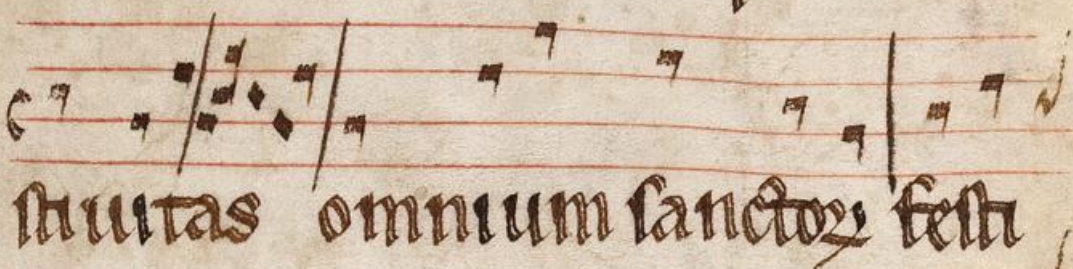 stiuitas omnium sanctoꝝ festi